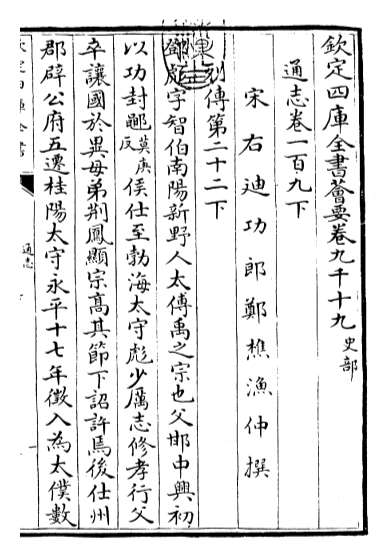 欽定四庫全書薈要卷九千十九 史部
通志卷一百九下
宋右迪功郎鄭樵漁仲撰
列傳第二十二下
鄧彪字智伯南陽新野人太傅禹之宗也父邯中興初
以功封鄳莫庚反侯仕至勃海太守彪少厲志修孝行父
卒讓國於異母弟荆鳳顯宗高其節下詔許焉後仕州
郡辟公府五遷桂陽太守永平十七年徵入為太僕數
通志